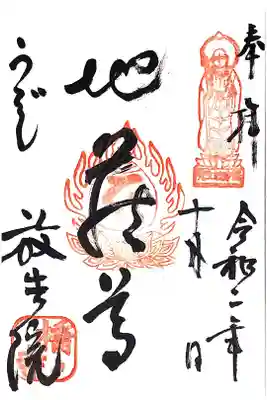 奉拝
令和二年
十月 日
地蔵尊
うぢ
放生院